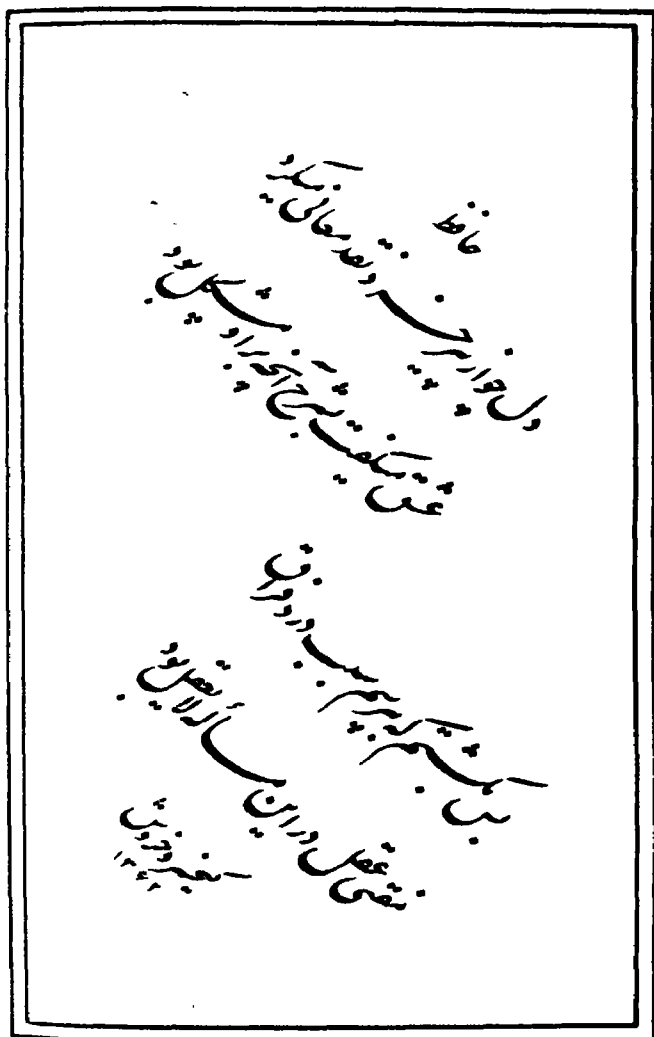 حافظ
دل چو از پیر خرد نقد معانی میکرد
عشق میگفت بشرح آنچه برو مشکل بود
بس بگشتم که بپرسم سبب درد فراق
مفتی عقل در این مسأله لا یعقل بود